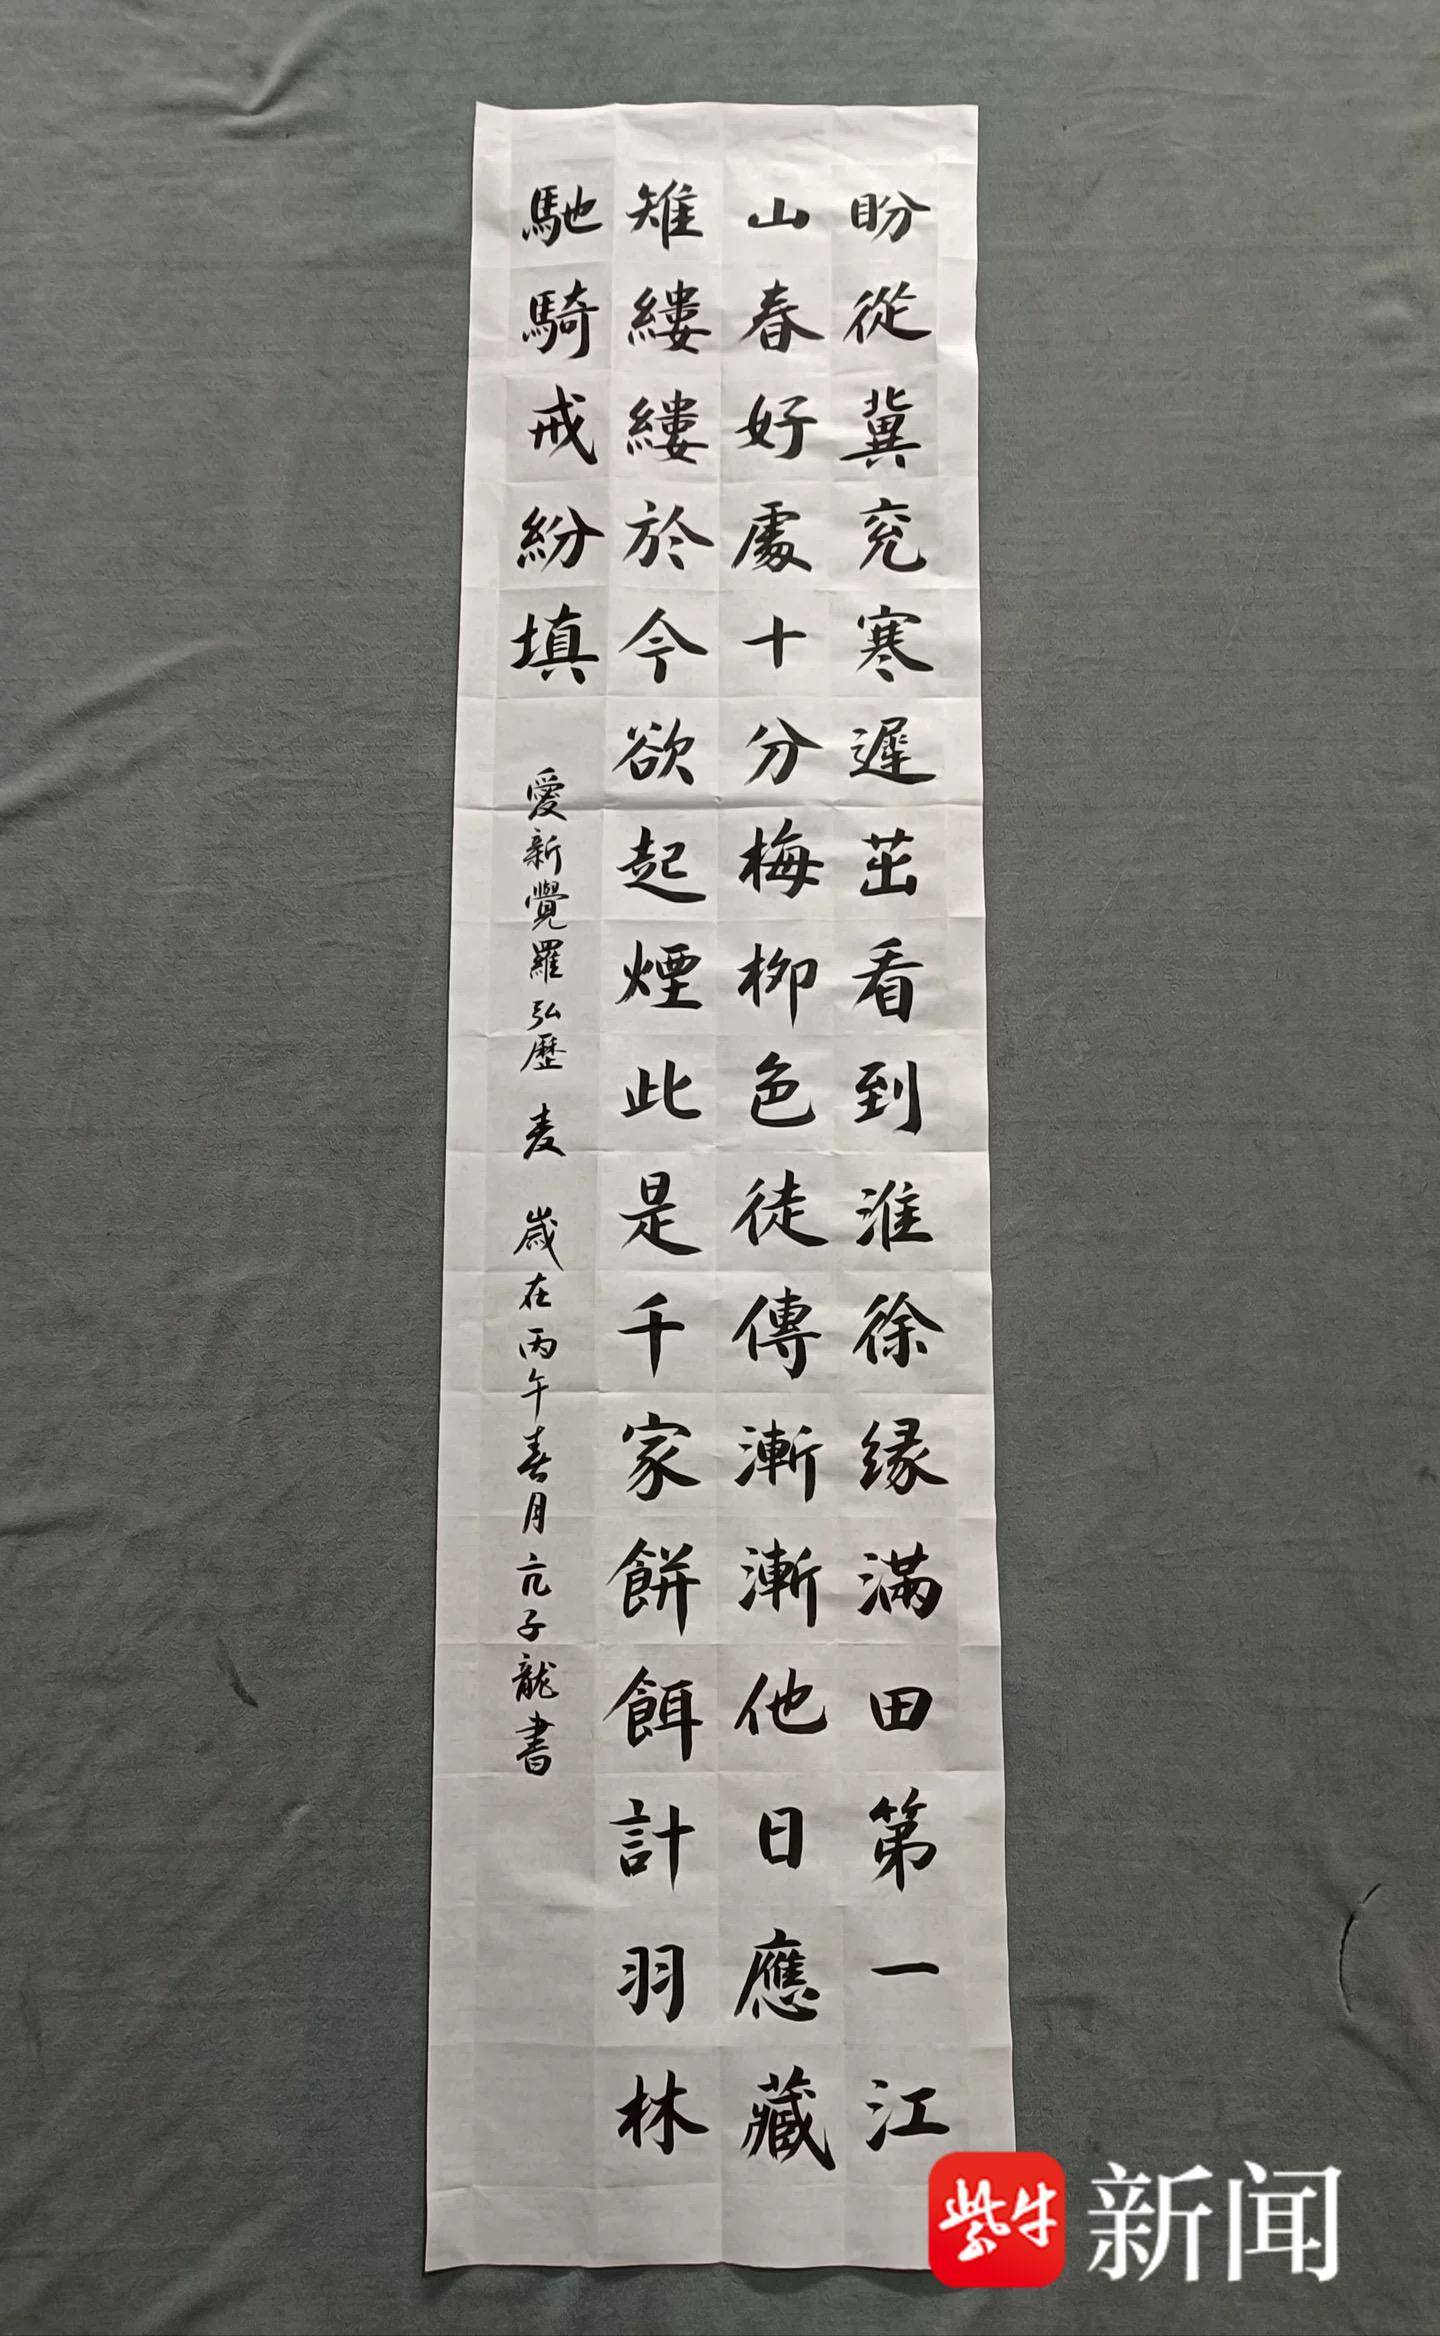 盼從冀兖寒遲茁看到淮徐緣滿田第一江
山春好處十分梅柳色徒傳漸漸他日應藏
雉縷縷於今欲起煙此是千家餅餌計羽林
馳騎戒紛填
愛新覺羅弘歷 麦 歲在丙午春月亢子龍書
紫牛新闻